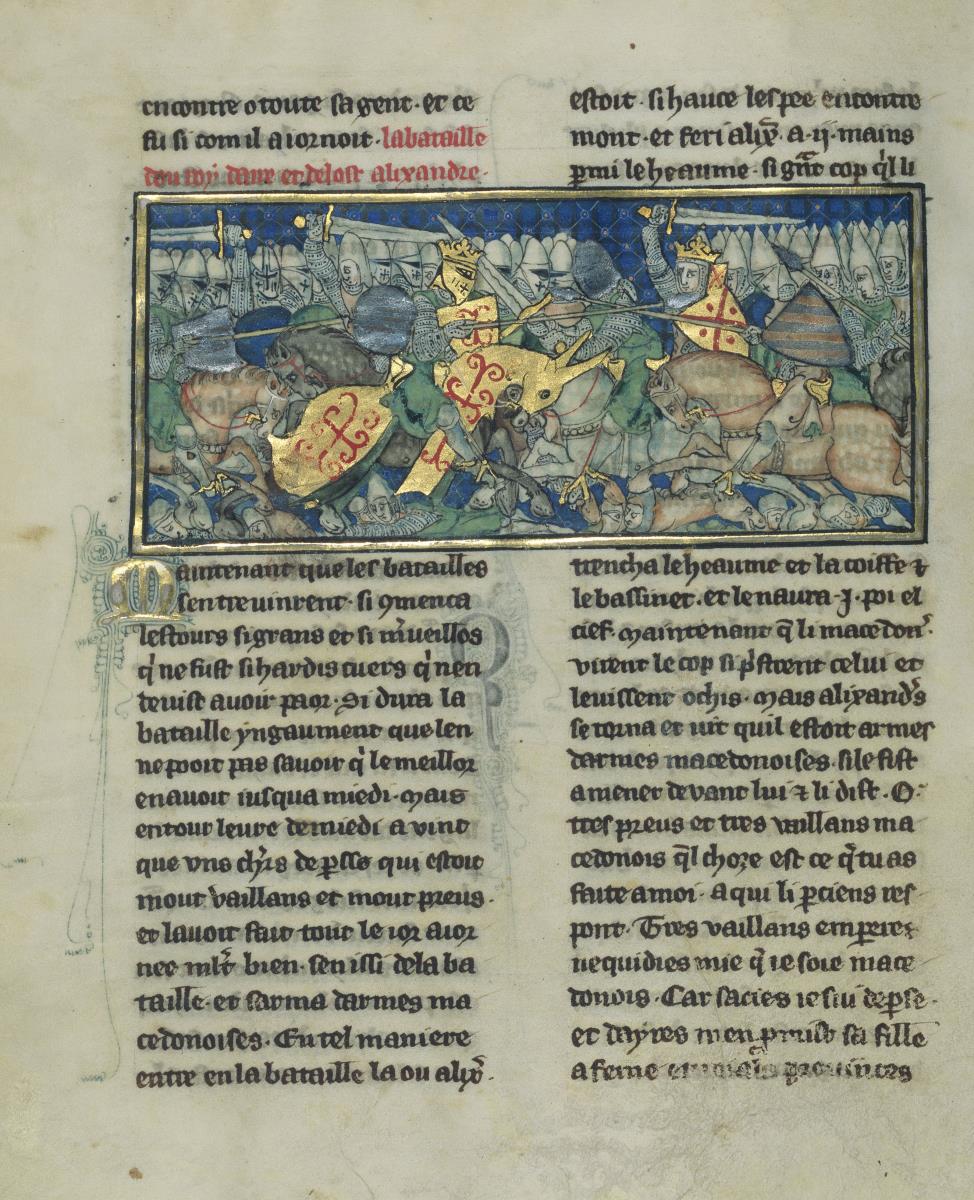 encontre o toute sa gent · et ce
fu si com il aiornoit · la bataille
dou roy daire et de lost alixandre ·
Maintenant que les batailles
sentreuinrent · si 9menca
lestours si grans et si mͬueillos
q̍ ne fust si hardis cuers q̍ nen
deuist auoir paor · Si dura la
bataille yngaument que len
ne pooit pas sauoir q̍ le meillor
en auoit iusqua miedi · mais
entour leure de miedi a vint
que vns ch̅rs de ꝑsse qui estoit
mout vaillans et mout preus ·
et lauoit fait tout le ior aior
nee ml̅t bien · sen issi de la ba
taille · et sarma darmes ma
cedonoises · En tel maniere
entre en la bataille la ou alix̅ ·
estoit · si hauce lespee encontre
mont · et feri alix̅ · a · ij · mains
parmi le heaume · si gͣnt cop q̍l li
trencha le heaume et la coiffe ⁊
le bassinet · et le naura · j · poi el
cief · maintenant q̅ li macedon̅ ·
virent le cop si p̍strent celui et
leuissent ochis · mais alixand̓s
se torna et uit quil estoit armes
darmes macedonoises · si le fist
amener deuant lui ⁊ li dist · O ·
tres preus et tres vaillans ma
cedonois q̅l choze est ce q̅ tu as
faite a moi · a qui li ꝑciens res
pont · Tres vaillans emperere
ne quidies mie q̅ ie soie mace
donois · Car sacies ie sui de ꝑse ·
et dayres men pmist sa fille
a feme prouinces